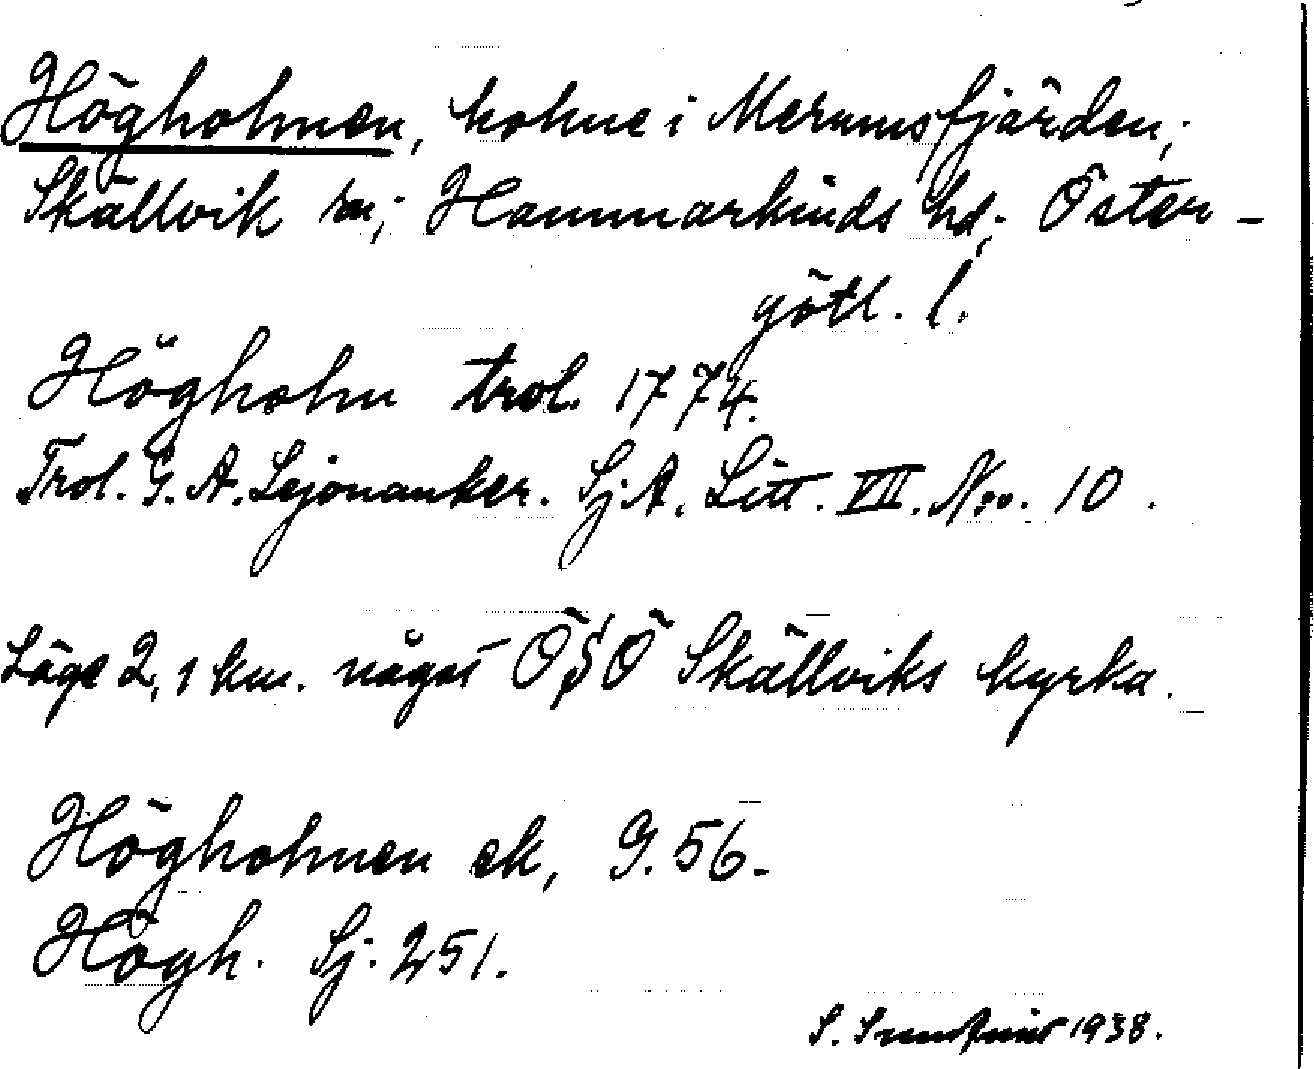 Högholmen, holme i Merumsfjärden,
Skällvik sn; Hammarkinds hd; Öster-
götl. l.
Högholm trol. 1774.
Trol. G. A. Lejonanker. Sj. A. Litt. VII. Nro. 10.
Läge 2,1 km. något ÖSÖ Skällviks kyrka.
Högholmen ek, G. 56.
Högh. Sj. 251.
S. 1938.